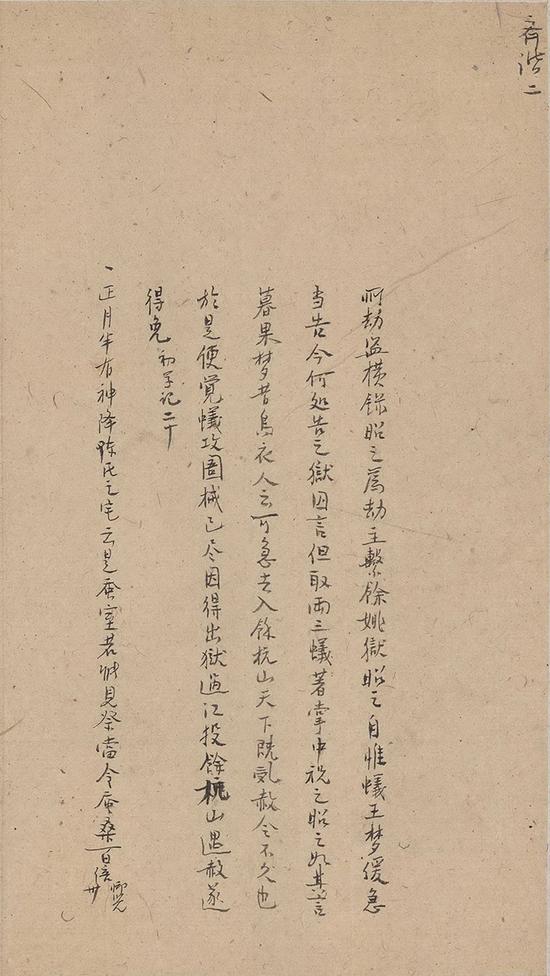 齐谐二
所劫盗横録昭之為劫主繫餘姚獄昭之自惟蟻王梦缓急
当告今何处告之獄囚言但取两三蟻著掌中祝之昭之如其言
暮果梦昔烏衣人云可急去入餘杭山天下既乱赦令不久也
於是便覚蟻攻啮械已尽因得出獄过江投餘杭山遇赦遂
得免 初学记二十
、正月半有神降陈氏之宅云是蚕室若能見祭當令蚕桑百倍